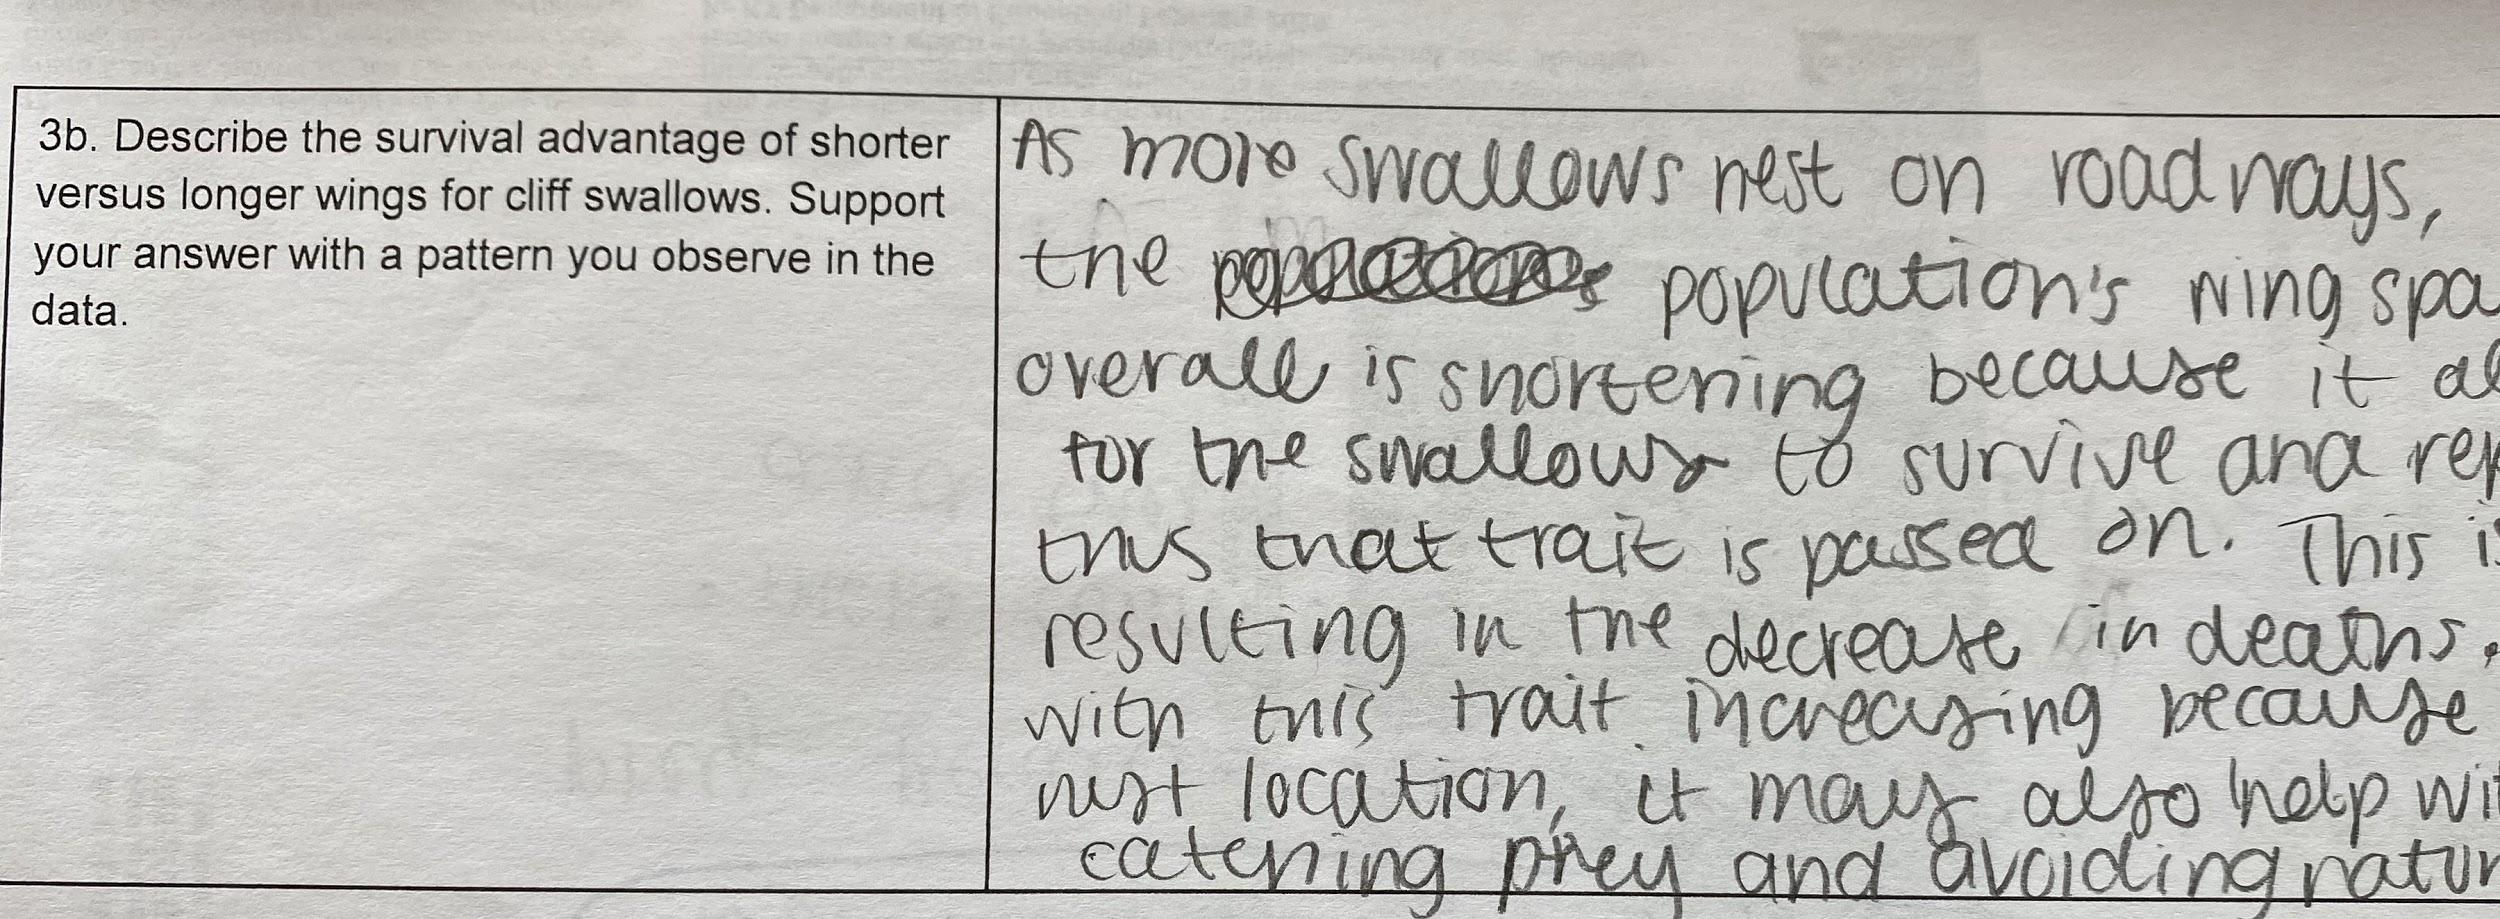 3b. Describe the survival advantage of shorter
versus longer wings for cliff swallows. Support
your answer with a pattern you observe in the
data.
As more swallows nest on roadways,
the population's wing spa
overall is shortening because it al
for the swallows to survive and rep
thus that trait is passed on. This is
resulting in the decrease in deaths.
with this trait increasing because
nest location, it may also help wit
catching prey and avoiding natur